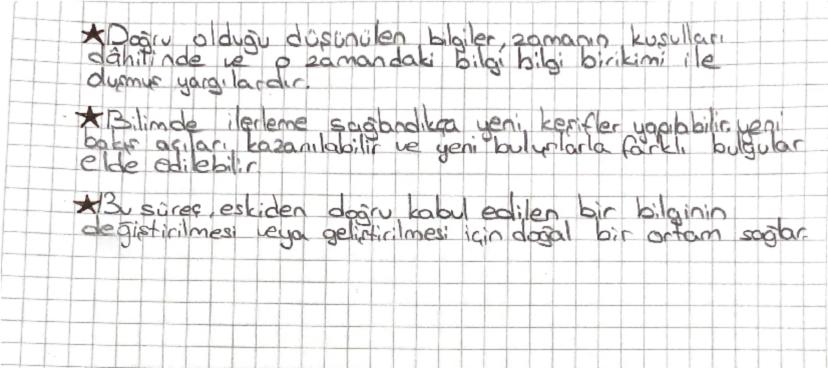 ★Doğru olduğu düşünülen bilgiler, zamanın kuşulları
dâhilinde ve o zamandaki bilgi bilgi birikimi ile
oluşmuş yargılardır.
★Bilimde ilerleme sağlandıkça yeni keşifler yapılabilir, yeni
bakış açıları kazanılabilir ve yeni buluşlarla farklı bulgular
elde edilebilir.
★Bu süreç, eskiden doğru kabul edilen bir bilginin
değiştirilmesi veya geliştirilmesi için doğal bir ortam sağlar.